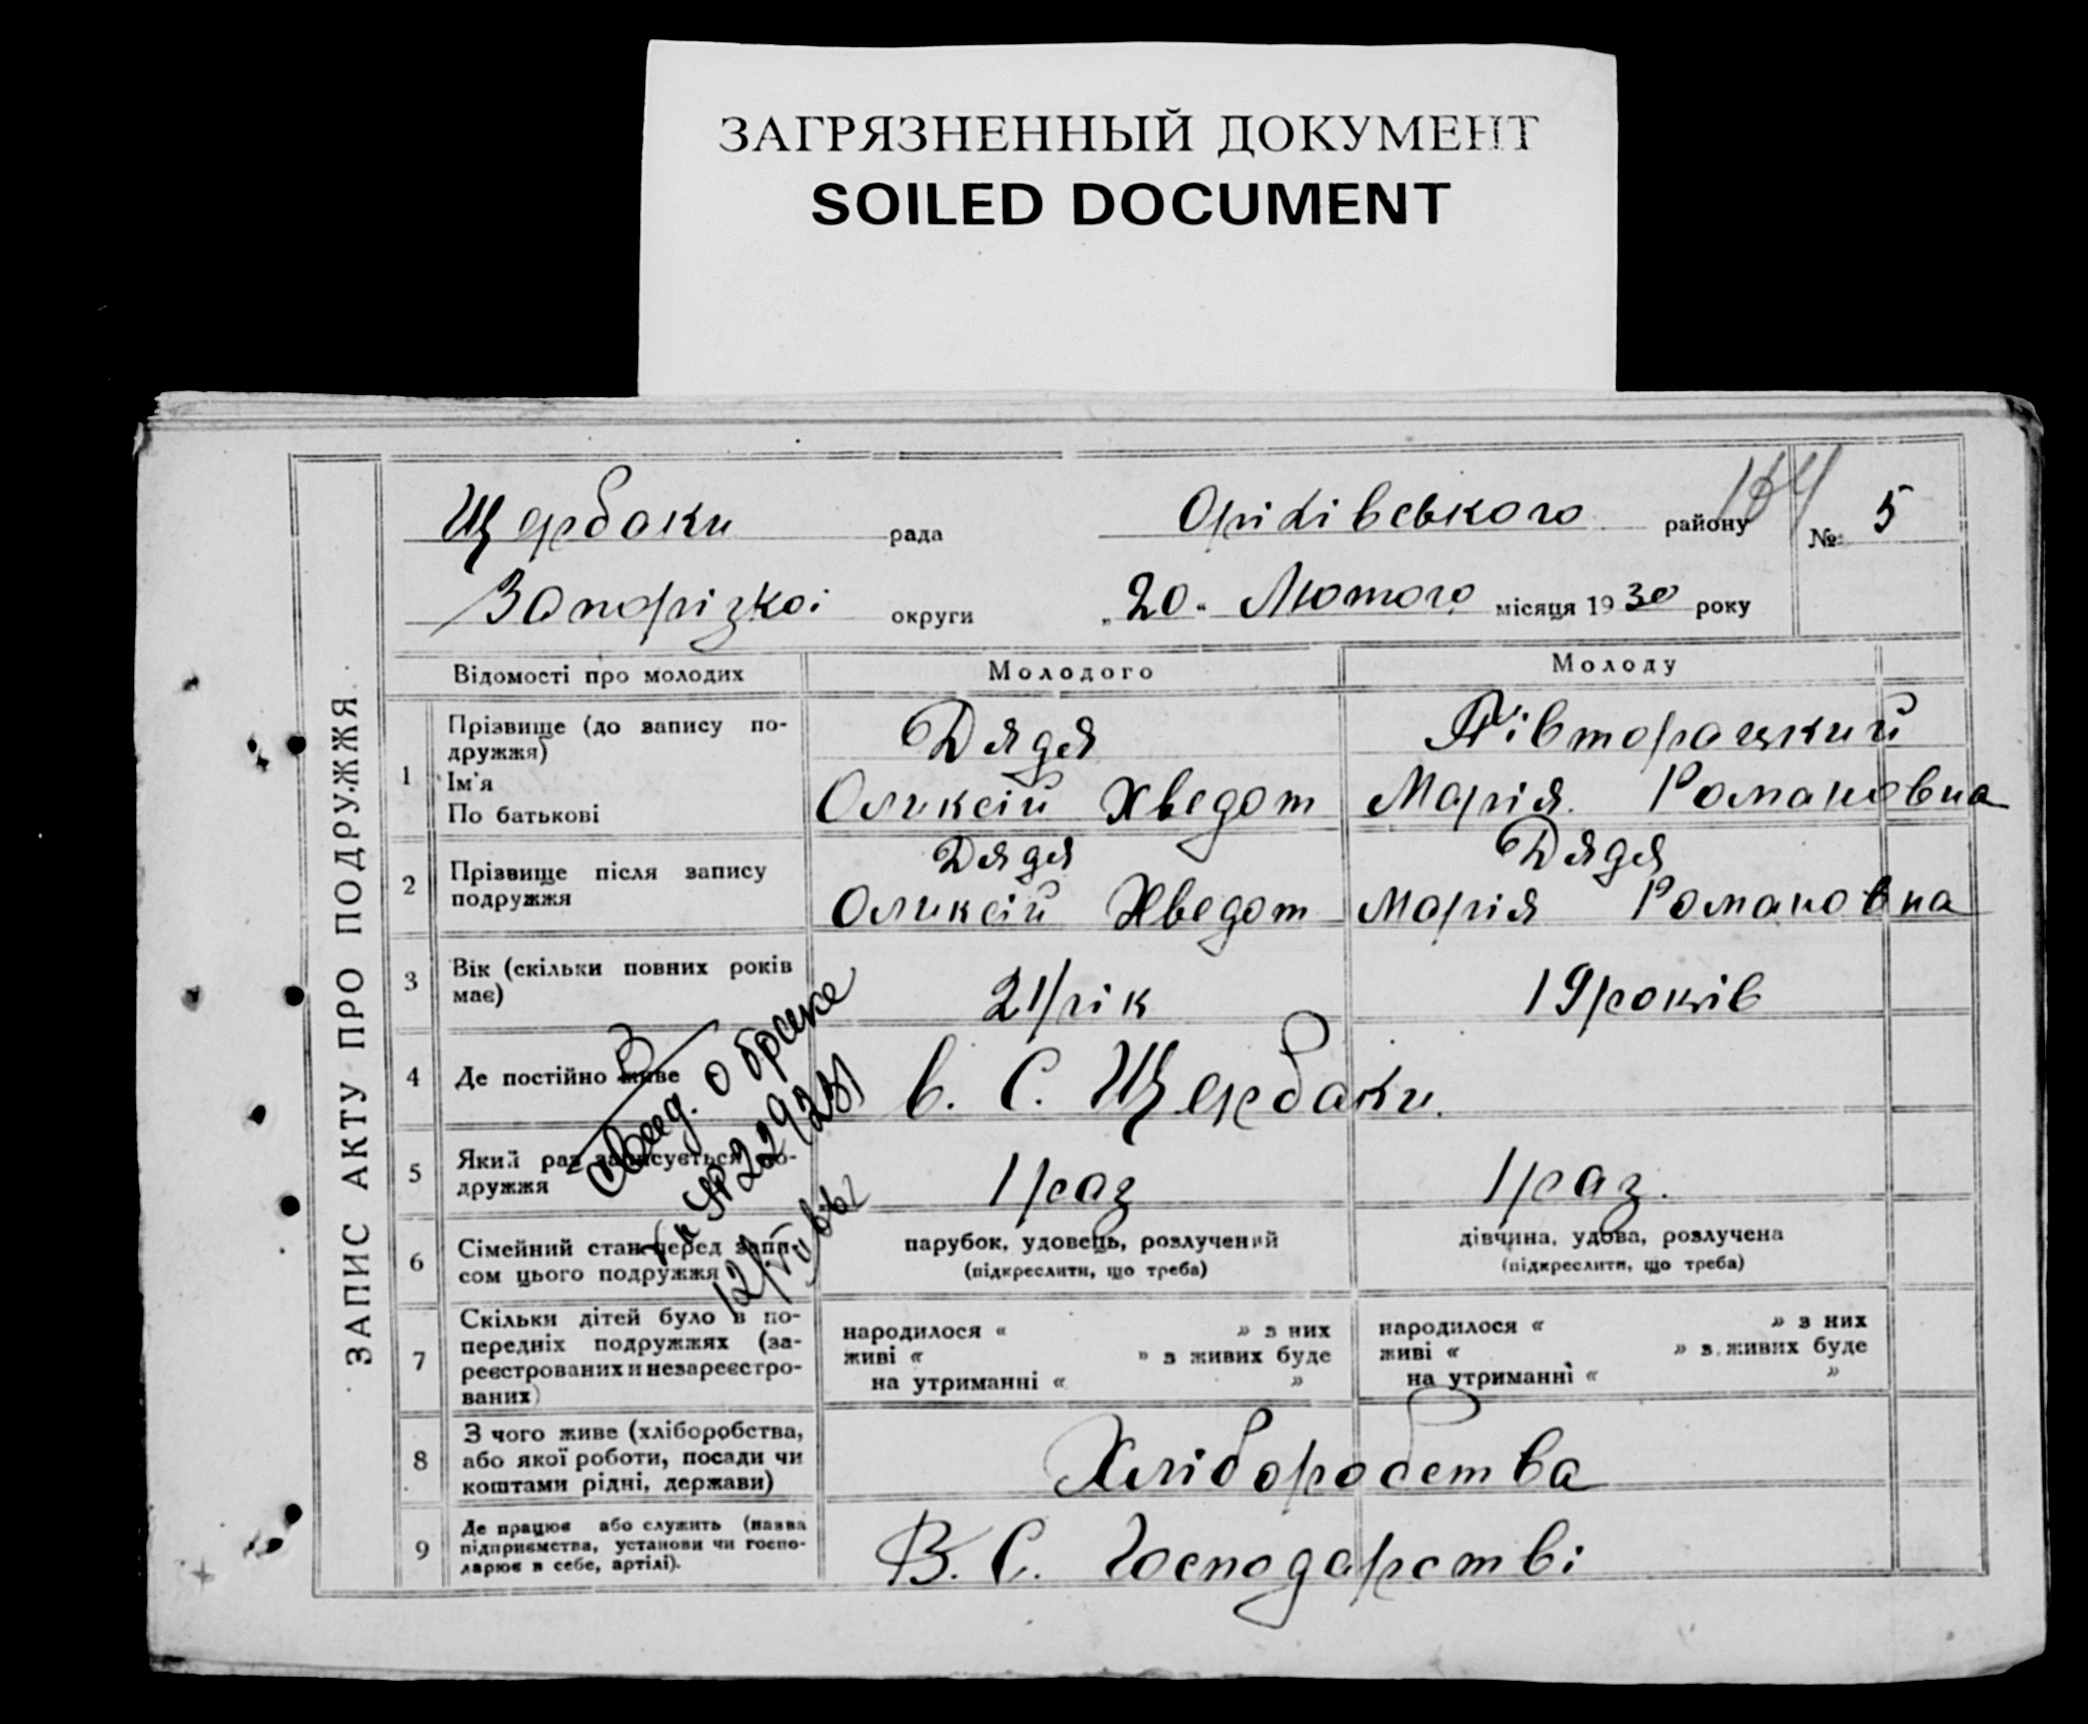 ЗАГРЯЗНЕННЫЙ ДОКУМЕНТ
SOILED DOCUMENT
ЗАПИС АКТУ ПРО ПОДРУЖЖЯ
Щербаки рада Оріхівського району 164 № 5
Запорізкої округи „ 20 " Лютого місяця 1930 року
Відомості про молодих Молодого Молоду
1 Прізвище (до запису по-
дружжя)
Ім'я
По батькові
Дядя Півторацкий
Оликсій Хведот Марія Романовна
2 Прізвище після запису
подружжя
Дядя Дядя
Оликсій Хведот Марія Романовна
3 Вік (скільки повних років
має)
21 рік 19 років
4 Де постійно живе
в. С. Щербаки.
5 Який раз записується по-
дружжя
1 раз 1 раз.
6 Сімейний стан перед запи-
сом цього подружжя
парубок, удовець, розлучений
(підкреслити, що треба)
дівчина, удова, розлучена
(підкреслити, що треба)
7 Скільки дітей було в по-
передніх подружжях (за-
реєстрованих и незареєстро-
ваних)
народилося « » з них
живі « » з живих буде
на утриманні « »
народилося « » з них
живі « » з живих буде
на утриманні « »
8 З чого живе (хліборобства,
або якої роботи, посади чи
коштами рідні, держави)
Хліборобства
9 Де працює або служить (назва
підприємства, установи чи госпо-
дарює в себе, артілі).
В. С. Господарстві
о браке